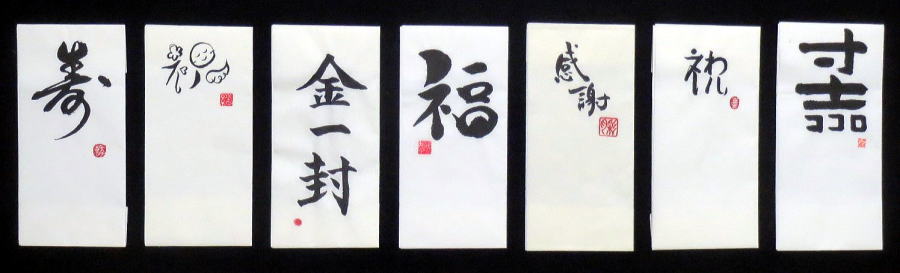 寿
祝
金一封
福
感謝
祝
寸志